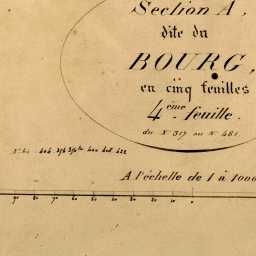 Section A,
dite du
BOURG,
en cinq feuilles
4ème feuille.
du N° 317 au N° 481.
A l'échelle de 1 à 1000